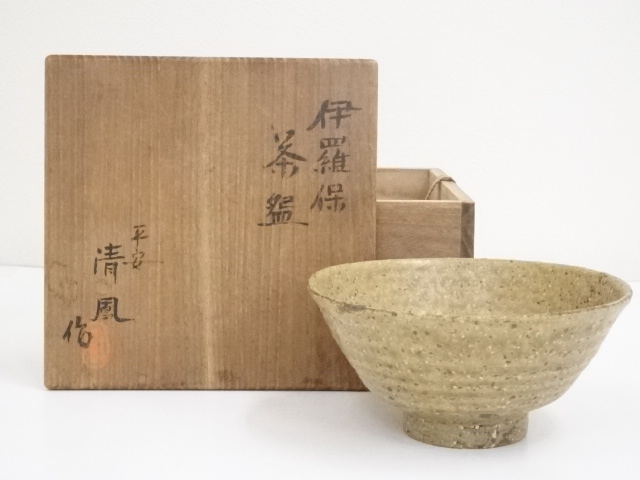 伊羅保
茶盌
平安
清風
作